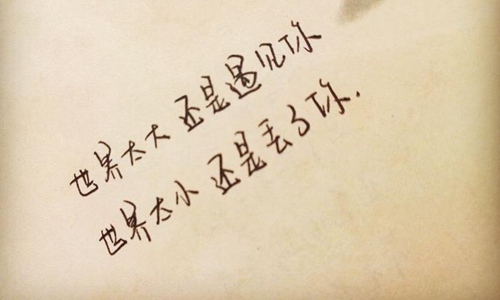 世界太大还是遇见你
世界太小还是丢了你.